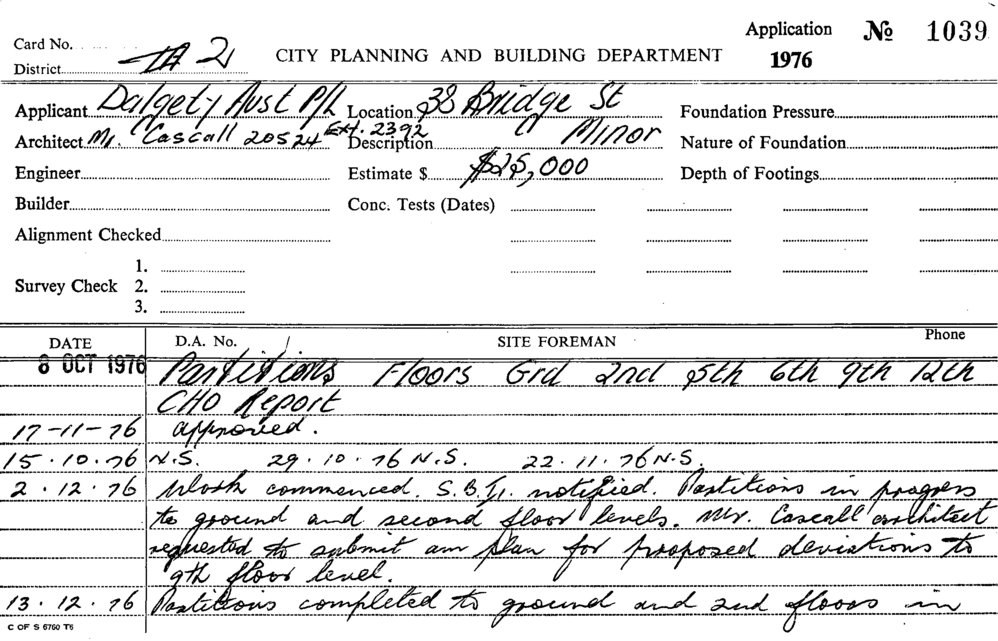 Application № 1039
Card No.
District TA 2 CITY PLANNING AND BUILDING DEPARTMENT 1976
Applicant Dalgety Aust P/L Location 38 Bridge St Foundation Pressure
Architect Mr. Cascall 20524 Ext. 2392 Description Minor Nature of Foundation
Engineer Estimate $ $25,000 Depth of Footings
Builder Conc. Tests (Dates)
Alignment Checked
1.
Survey Check 2.
3.
DATE D.A. No. SITE FOREMAN Phone
8 OCT 1976 Partitions Floors Grd 2nd 5th 6th 9th 12th
CHO Report
17-11-76 approved.
15.10.76 N.S. 29.10.76 N.S. 22.11.76 N.S.
2.12.76 Work commenced. S.B.I. notified. Partitions in progress
to ground and second floor levels. Mr. Cascall architect
requested to submit am plan for proposed deviations to
9th floor level.
13.12.76 Partitions completed to ground and 2nd floors in
C OF S 6760 T6